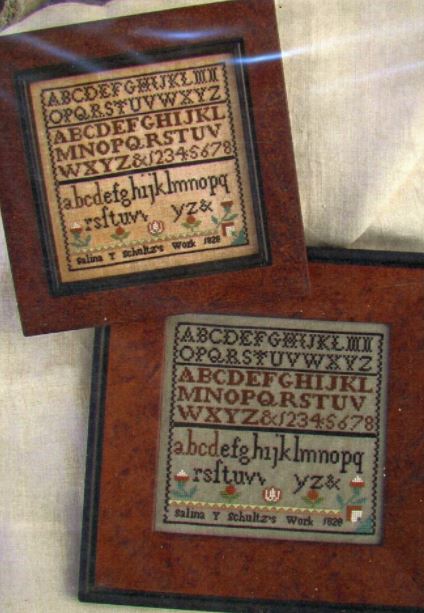 ABCDEFGHIJKLMN
OPQRSTUVWXYZ
ABCDEFGHIJKL
MNOPQRSTUV
WXYZ&12345678
abcdefghijklmnopq
rsſtuvv yz&
Salina Y Schultz's Work 1828
ABCDEFGHIJKLMN
OPQRSTUVWXYZ
ABCDEFGHIJKL
MNOPQRSTUV
WXYZ&12345678
abcdefghijklmnopq
rsſtuvv yz&
Salina Y Schultz's Work 1828